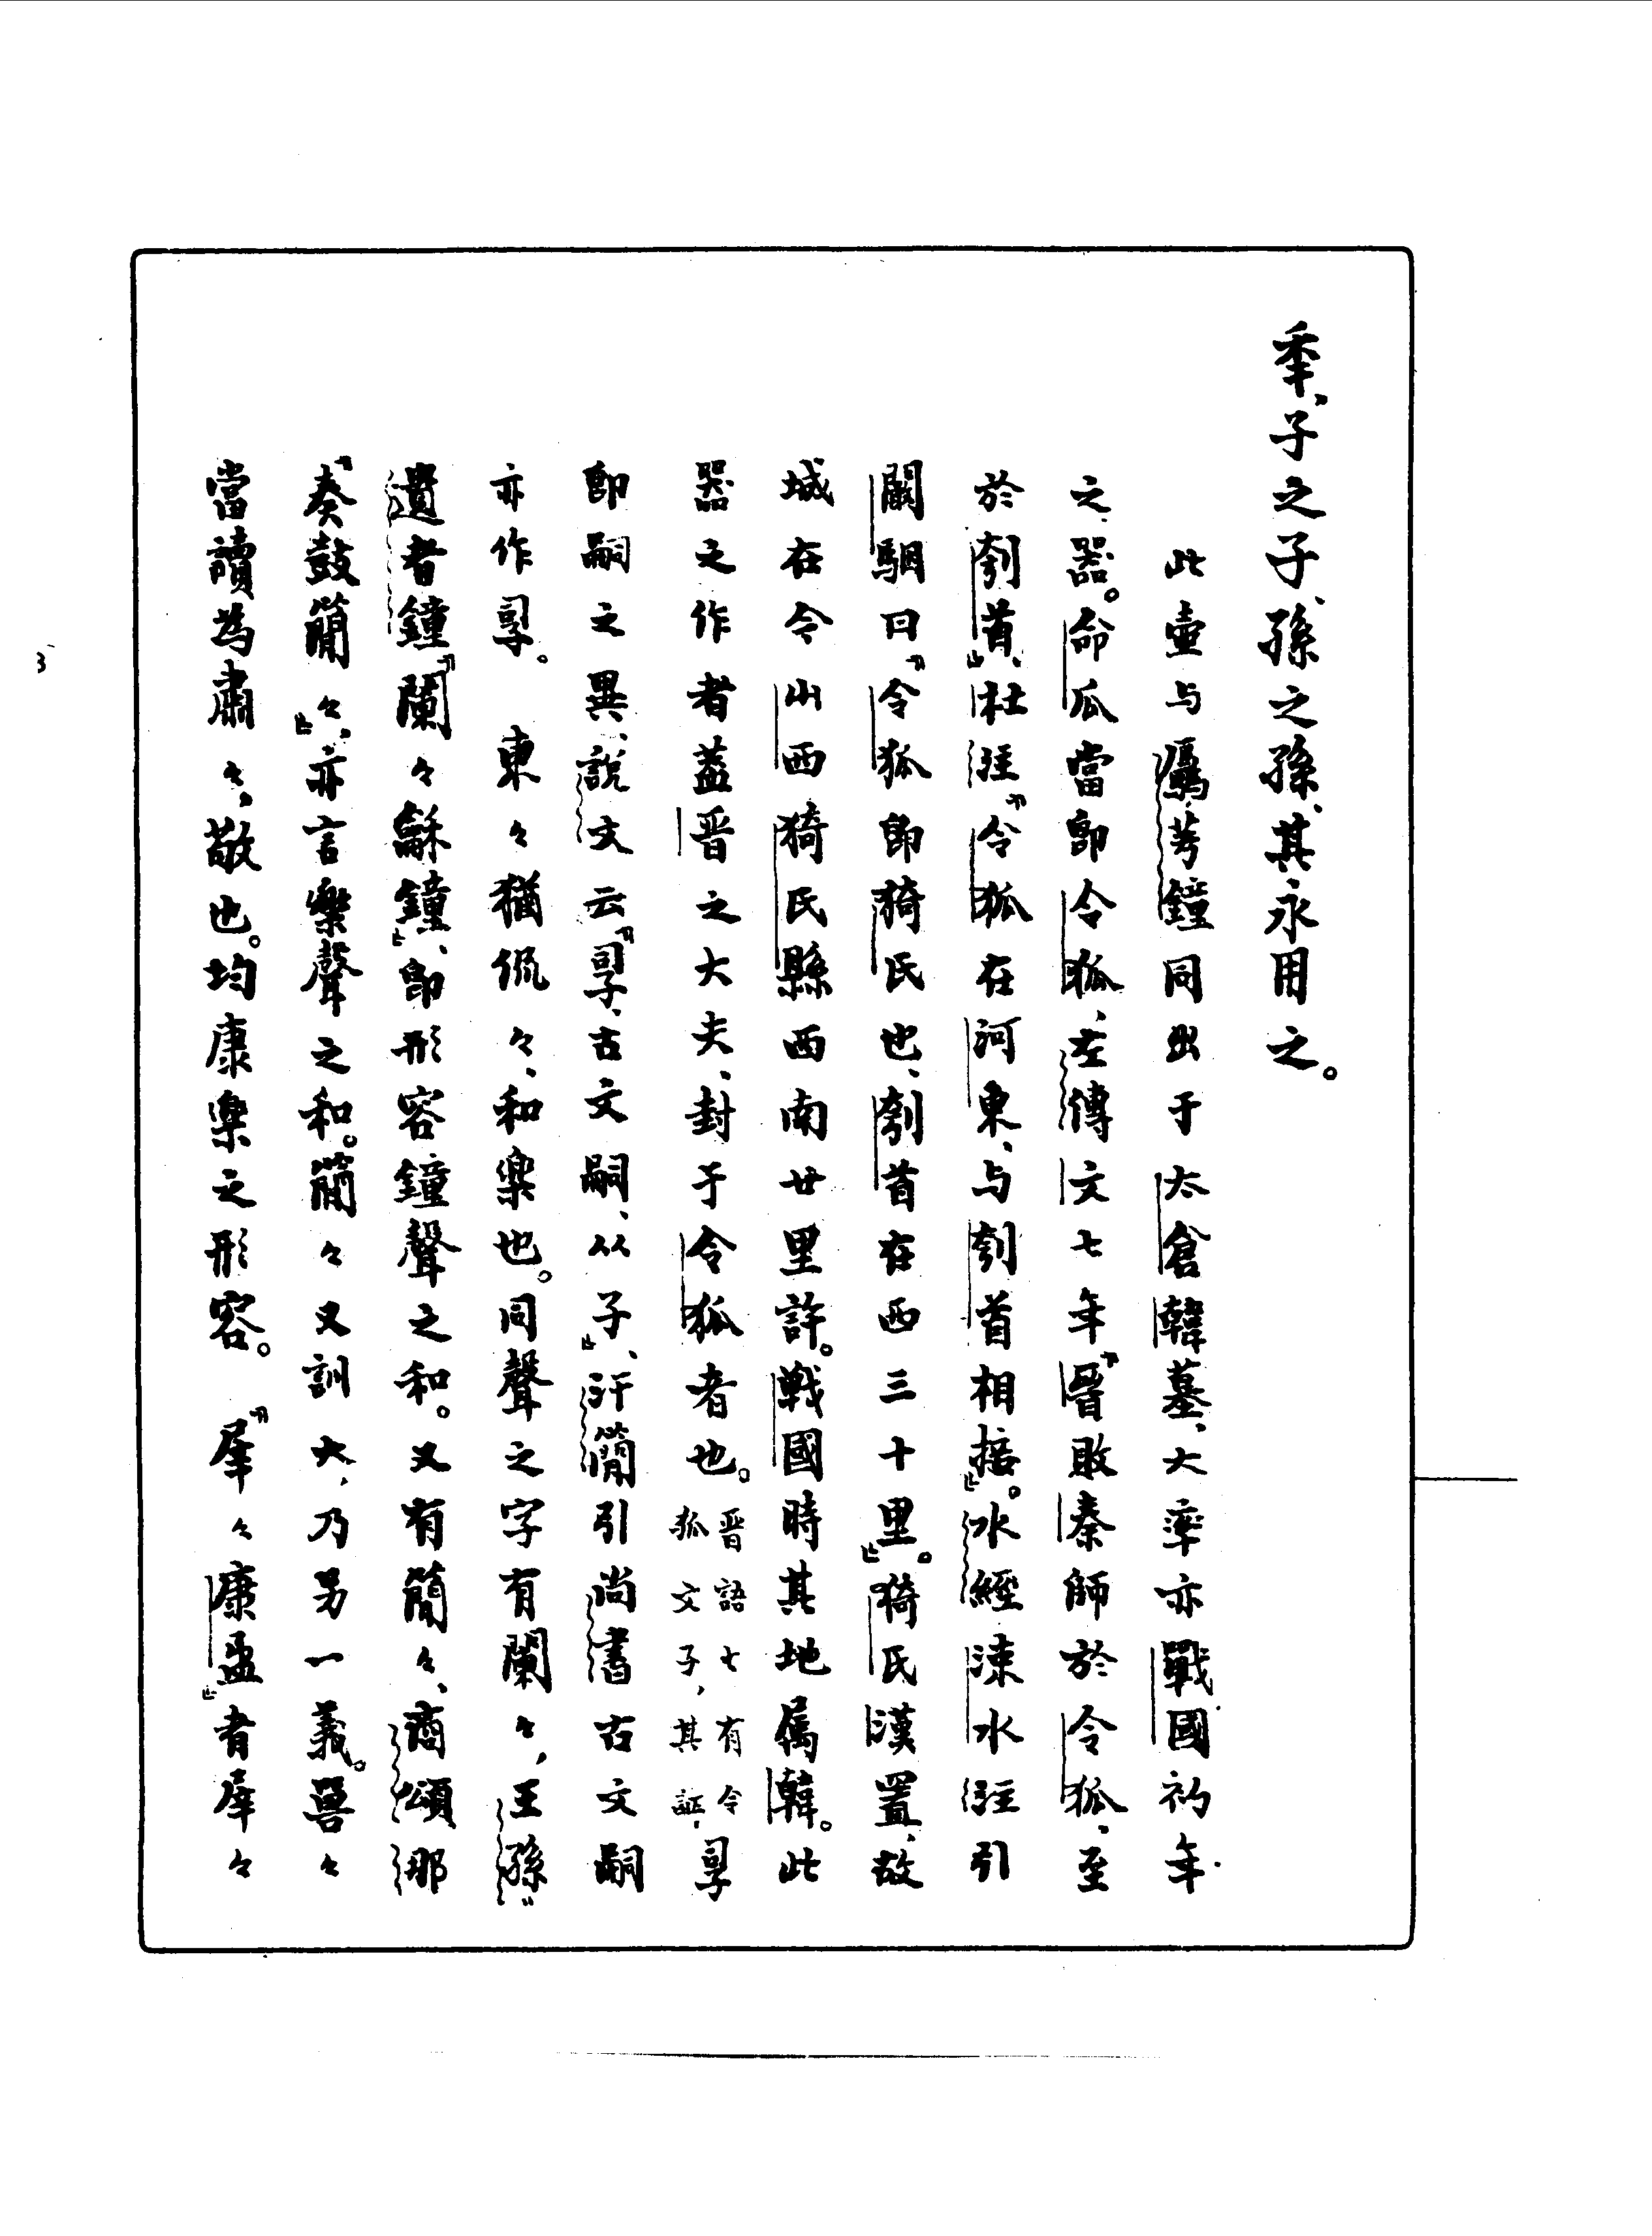 年,子之子、孫之孫、其永用之。
此壷与𠫑羌鐘同出于太倉韓墓、大率亦戰國初年
之器。命瓜當即令狐、左傳文七年『晉敗秦師於令狐、至
於刳首』、杜注『令狐在河東、与刳首相接』。水經涑水注引
闞駰曰『令狐即猗氏也、刳首在西三十里』。猗氏漢置、故
城在今山西猗氏縣西南廿里許。戦國時其地属韓。此
器之作者蓋晋之大夫、封于令狐者也。晋語七有令狐文子,其証,孠
即嗣之異、説文云『孠、古文嗣、从子』、汗簡引尚書古文嗣
亦作孠。 柬々猶侃々、和楽也。同聲之字有闌々,王孫
遺者鐘『闌々龢鐘』、即形容鐘聲之和。又有簡々、商頌那
『奏鼓簡々』,亦言樂聲之和。簡々又訓大,乃另一義。嘼々
當讀為肅々,敬也。均康樂之形容。 『屖々康盄』者屖々